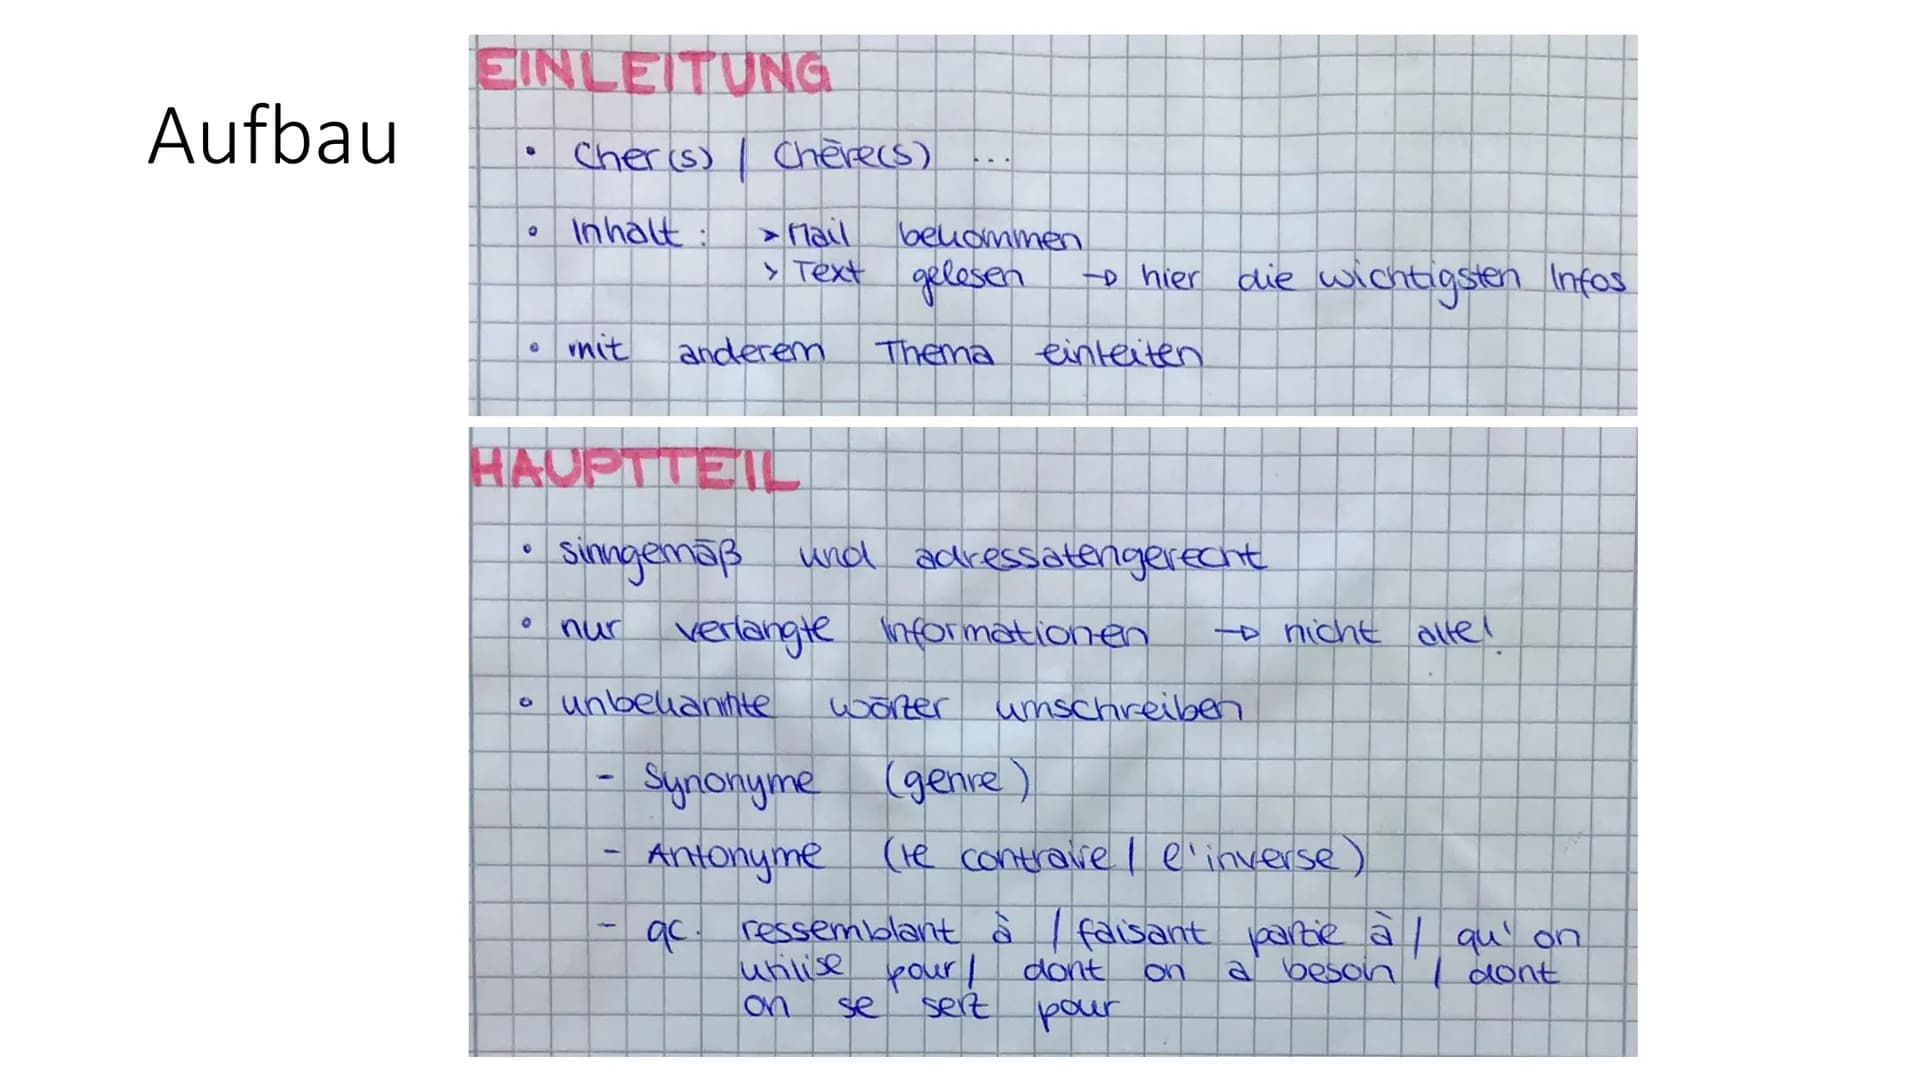 Aufbau
EINLEITUNG
• Cher(s) | Chère(s) ...
• Inhalt: > Mail bekommen
> Text gelesen → hier die wichtigsten Infos
• mit anderem Thema einleiten
HAUPTTEIL
• sinngemäß und adressatengerecht
• nur verlangte Informationen → nicht alle!
• unbekannte Wörter umschreiben
- Synonyme (genre)
- Antonyme (le contraire | l'inverse)
- qc. ressemblant à | faisant partie à | qu'on
utilise pour | dont on a besoin | dont
on se sert pour